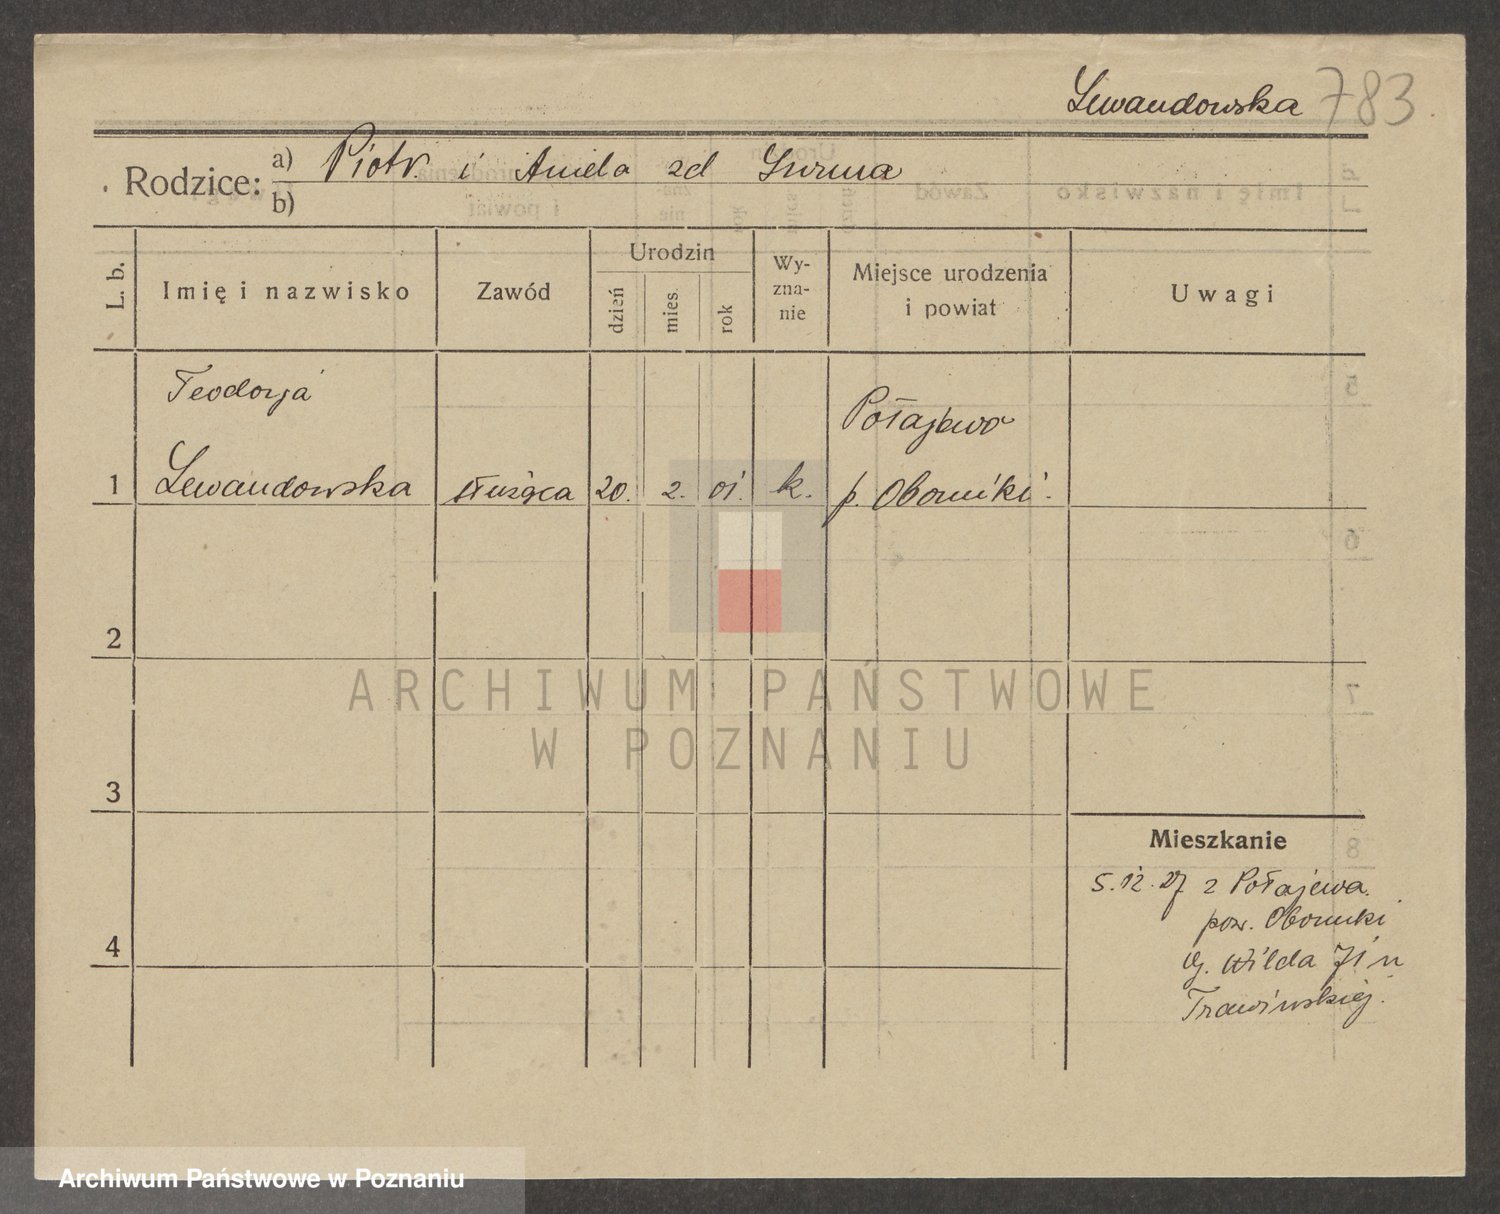 Lewandowska 783
Rodzice: a) Piotr i Aniela zd Surma
b)
L. b.
Imię i nazwisko
Zawód
Urodzin
dzień
mies.
rok
Wy-
zna-
nie
Miejsce urodzenia
i powiat
Uwagi
Teodozja
Połajewo
1 Lewandowska służąca 20. 2. 01. k. p. Oborniki.
2
3
4
Mieszkanie
5.12.27 z Połajewa.
pow. Oborniki
Wilda 71 u
Trawińskiej.
ARCHIWUM PAŃSTWOWE
W POZNANIU
Archiwum Państwowe w Poznaniu